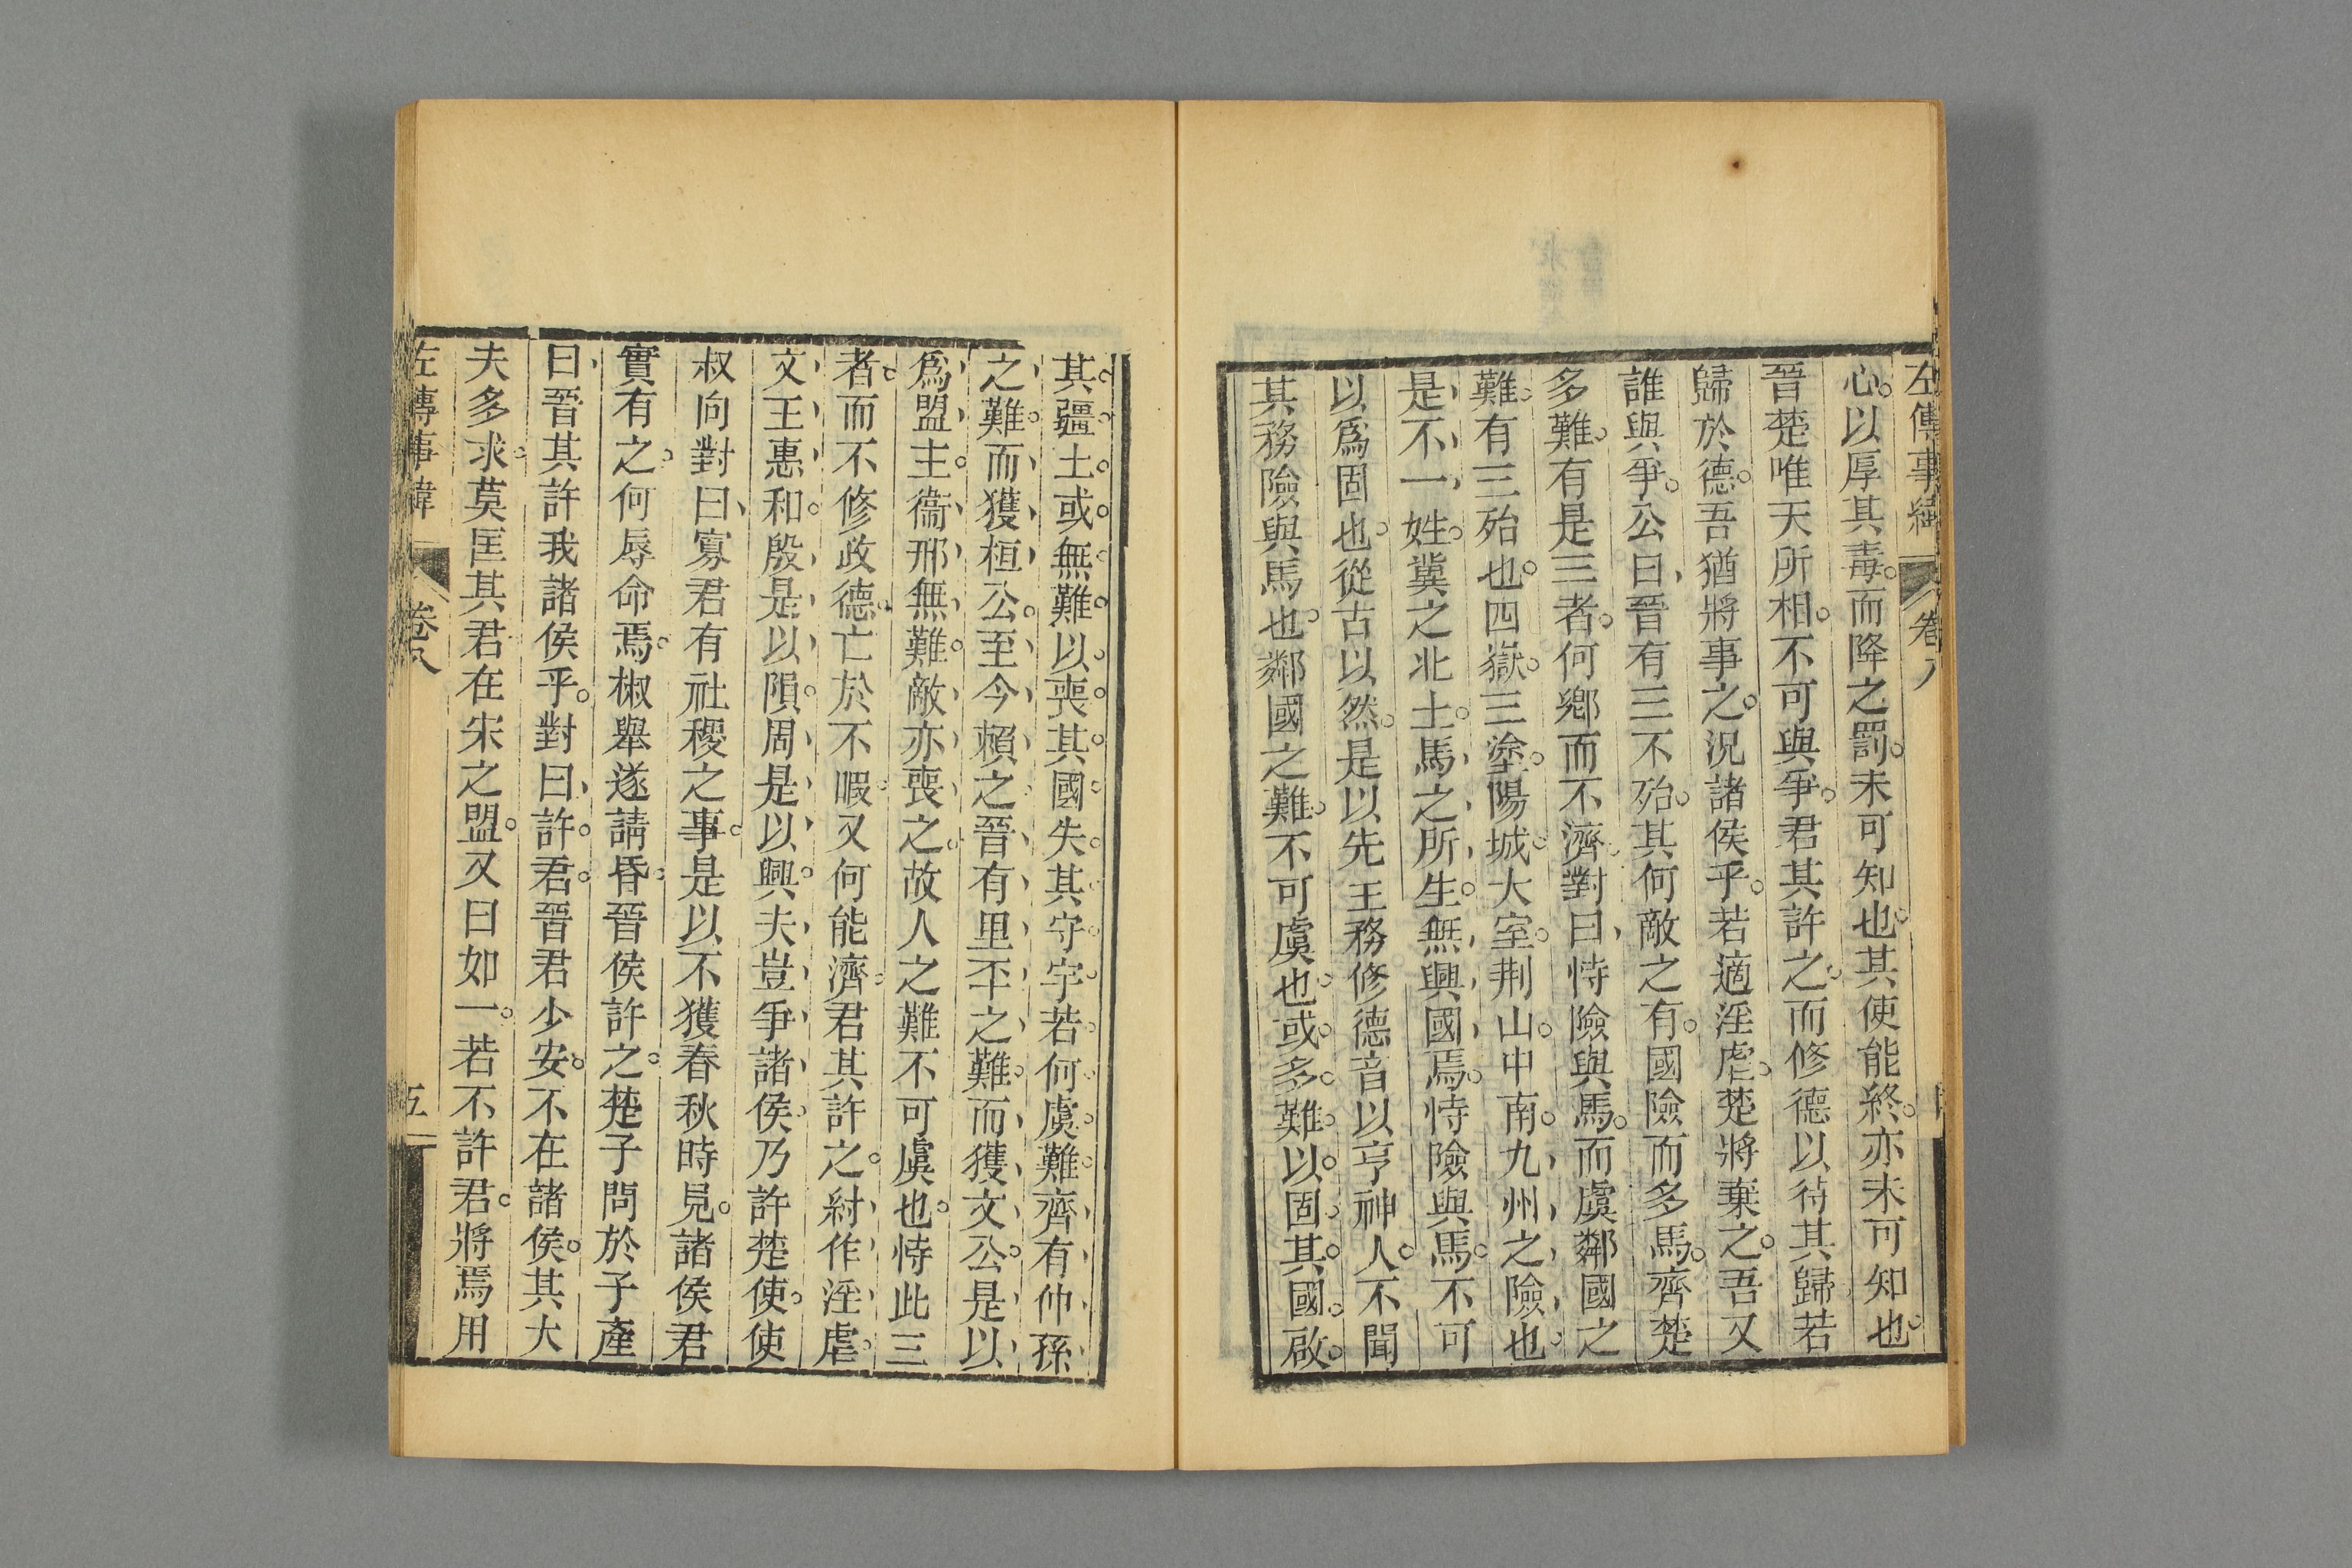 左傳事緯 卷八
心。以厚其毒。而降之罰。未可知也。其使能終。亦未可知也。
晉楚唯天所相。不可與爭。君其許之。而修德以待其歸若
歸於德。吾猶將事之。況諸侯乎。若適淫虐。楚將棄之。吾又
誰與爭。公曰、晉有三不殆。其何敵之有。國險而多馬。齊楚
多難。有是三者。何鄉而不濟。對曰、恃險與馬。而虞鄰國之
難。有三殆也。四嶽。三塗。陽城。大室。荆山。中南。九州之險也。
是不一姓。冀之北土。馬之所生。無興國焉。恃險與馬。不可
以爲固也。從古以然。是以先王務修德音以亨神人。不聞
其務險與馬也。鄰國之難。不可虞也。或多難以固其國。啟
其疆土。或無難以喪其國。失其守宇。若何虞難。齊有仲孫
之難。而獲桓公。至今賴之。晉有里丕之難。而獲文公。是以
爲盟主。衞邢無難。敵亦喪之。故人之難不可虞也。恃此三
者。而不修政德。亡於不暇。又何能濟。君其許之。紂作淫虐。
文王惠和。殷是以隕。周是以興。夫豈爭諸侯。乃許楚使。使
叔向對曰、寡君有社稷之事。是以不獲春秋時見。諸侯君
實有之。何辱命焉。椒舉遂請昏。晉侯許之。楚子問於子產
曰、晉其許我諸侯乎。對曰、許君。晉君少安。不在諸侯。其大
夫多求。莫匡其君。在宋之盟。又曰如一。若不許君。將焉用
左傳事緯 卷八 五